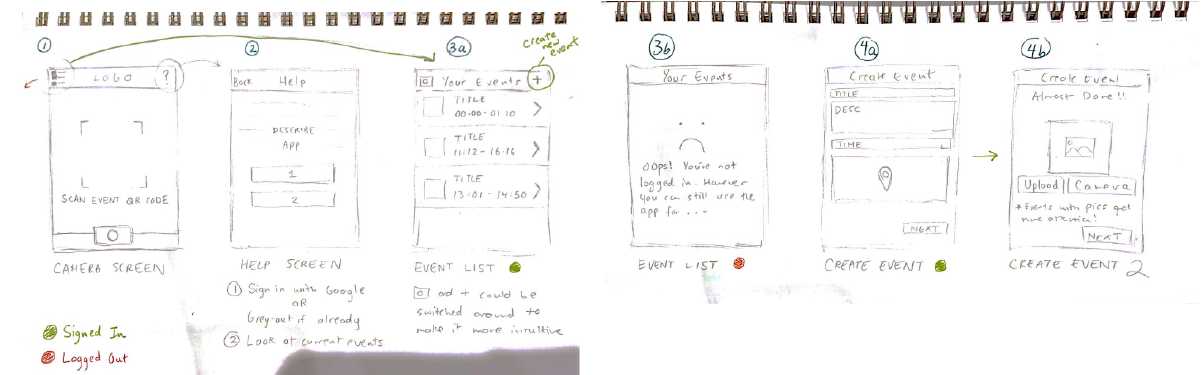 1
LOGO
?
SCAN EVENT QR CODE
CAMERA SCREEN
Signed In
Logged Out
2
Back Help
DESCRIBE
APP
1
2
HELP SCREEN
1 Sign in with Google
OR
Grey-out if already
2 Look at current events
3a
create
new
event
Your Events +
TITLE
00:00-01:10
TITLE
11:12-16:16
TITLE
13:01-14:50
EVENT LIST
and + could be
switched around to
make it more intuitive
3b
Your Events
Oops! You're not
logged in. However
you can still use the
app for ...
EVENT LIST
4a
Create Event
TITLE
DESC
TIME
NEXT
CREATE EVENT
4b
Create Event
Almost Done!!
Upload Camera
*Events with pics get
more attention!
NEXT
CREATE EVENT 2